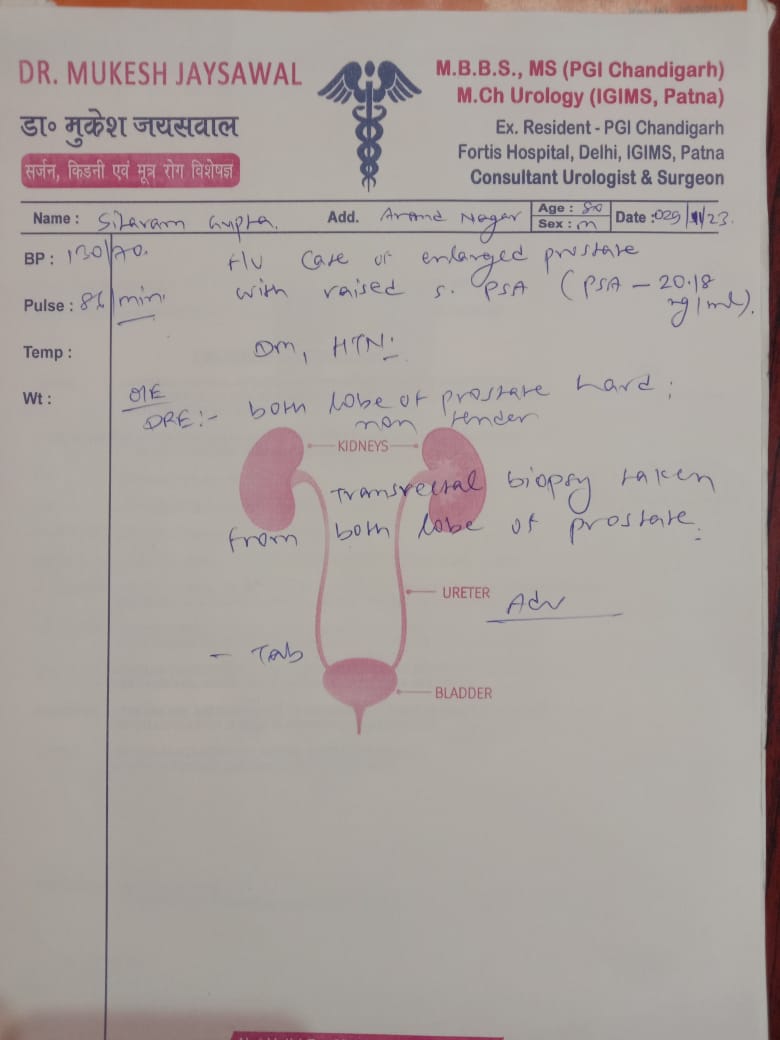 DR. MUKESH JAYSAWAL
डा॰ मुकेश जयसवाल
सर्जन, किडनी एवं मूत्र रोग विशेषज्ञ
M.B.B.S., MS (PGI Chandigarh)
M.Ch Urology (IGIMS, Patna)
Ex. Resident - PGI Chandigarh
Fortis Hospital, Delhi, IGIMS, Patna
Consultant Urologist & Surgeon
Name : Sitaram Gupta. Add. Anand Nagar Age : 80 Sex : M Date : 029/11/23.
BP : 130/70.
Pulse : 86/min.
Temp :
Wt :
F/U case of enlarged prostate
with raised s. PSA (PSA - 20.18
ng/ml).
DM, HTN.
O/E
DRE:- both lobe of prostate hard;
non tender
KIDNEYS
Transrectal biopsy taken
from both lobe of prostate.
URETER
Adv
- Tab
BLADDER